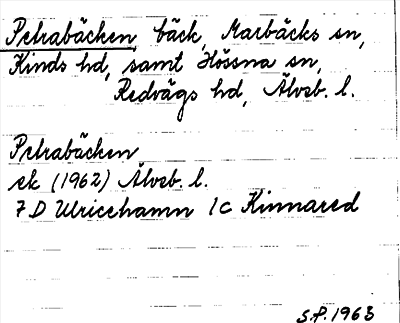 Petrabäcken, bäck, Marbäcks sn,
Kinds hd, samt Hössna sn,
Redvägs hd, Älvsb. l.
Petrabäcken
ek (1962) Älvsb. l.
7 D Ulricehamn 1c Kinnared
S.P. 1963